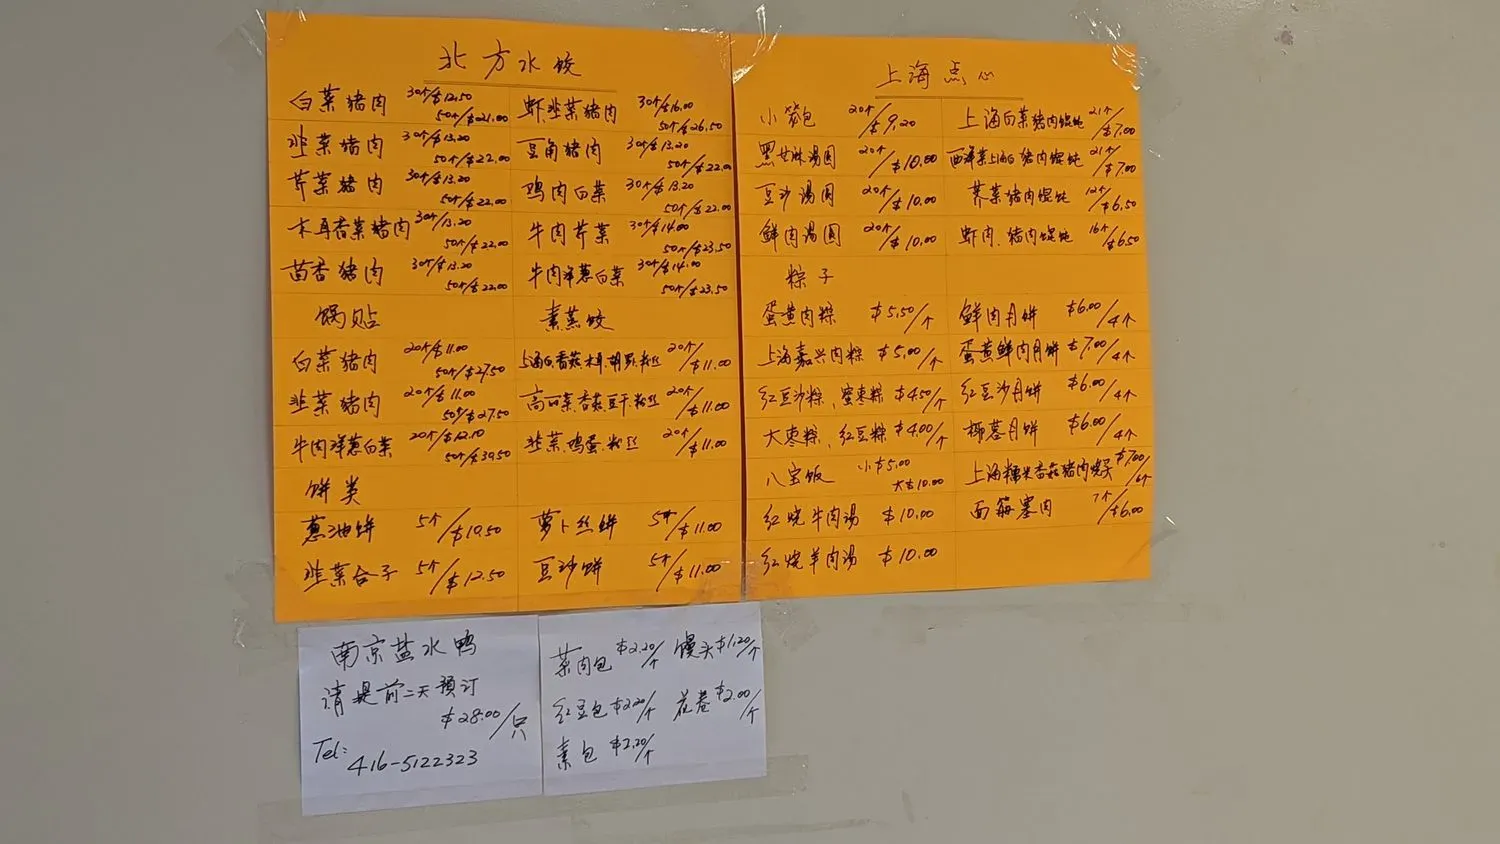 北方水饺
白菜猪肉 30个/$12.50 50个/$21.00
韭菜猪肉 30个/$13.20 50个/$22.00
芹菜猪肉 30个/$13.20 50个/$22.00
木耳香菜猪肉 30个/$13.20 50个/$22.00
茴香猪肉 30个/$13.20 50个/$22.00
虾韭菜猪肉 30个/$16.00 50个/$26.50
豆角猪肉 30个/$13.20 50个/$22.00
鸡肉白菜 30个/$13.20 50个/$22.00
牛肉芹菜 30个/$14.00 50个/$23.50
牛肉洋葱白菜 30个/$14.00 50个/$23.50
锅贴
白菜猪肉 20个/$11.00 50个/$27.50
韭菜猪肉 20个/$11.00 50个/$27.50
牛肉洋葱白菜 20个/$12.10 50个/$39.50
素蒸饺
上海白.香菇.木耳.胡萝.粉丝 20个/$11.00
高丽菜.香菇.豆干.粉丝 20个/$11.00
韭菜.鸡蛋.粉丝 20个/$11.00
饼类
葱油饼 5个/$10.50
韭菜合子 5个/$12.50
萝卜丝饼 5个/$11.00
豆沙饼 5个/$11.00
上海点心
小笼包 20个/$9.20
黑芝麻汤圆 20个/$10.00
豆沙汤圆 20个/$10.00
鲜肉汤圆 20个/$10.00
上海白菜猪肉馄饨 21个/$7.00
西洋菜上海白猪肉馄饨 21个/$7.00
荠菜猪肉馄饨 12个/$6.50
虾肉、猪肉馄饨 16个/$6.50
粽子
蛋黄肉粽 $5.50/个
上海嘉兴肉粽 $5.00/个
红豆沙粽、蜜枣粽 $4.50/个
大枣粽、红豆粽 $4.00/个
八宝饭 小$5.00 大$10.00
红烧牛肉汤 $10.00
红烧羊肉汤 $10.00
鲜肉月饼 $6.00/4个
蛋黄鲜肉月饼 $7.00/4个
红豆沙月饼 $6.00/4个
椰蓉月饼 $6.00/4个
上海糯米香菇猪肉烧卖 $7.00/6个
面筋塞肉 7个/$6.00
南京盐水鸭
请提前二天预订
$28.00/只
Tel: 416-5122323
菜肉包 $2.20/个 馒头 $1.20/个
红豆包 $2.20/个 花卷 $2.00/个
素包 $2.20/个